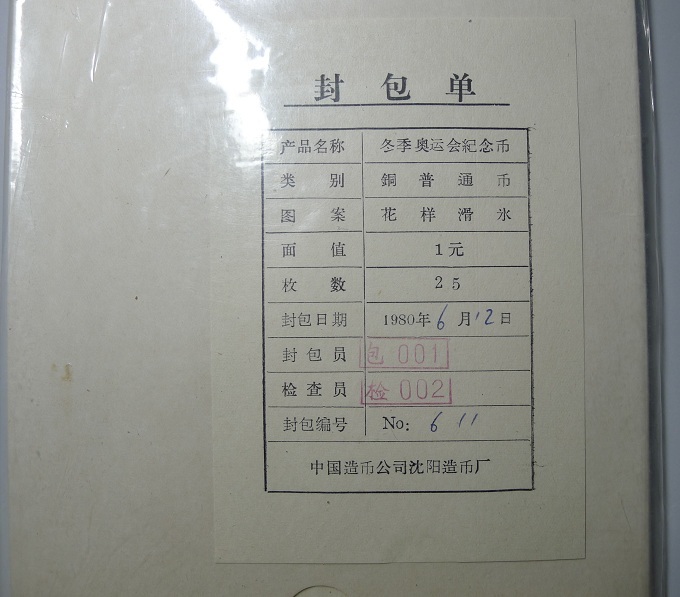 封包单
产品名称 冬季奥运会紀念币
类别 銅普通币
图案 花样滑氷
面值 1元
枚数 25
封包日期 1980年6月12日
封包员 包001
检查员 检002
封包编号 No: 6 11
中国造币公司沈阳造币厂